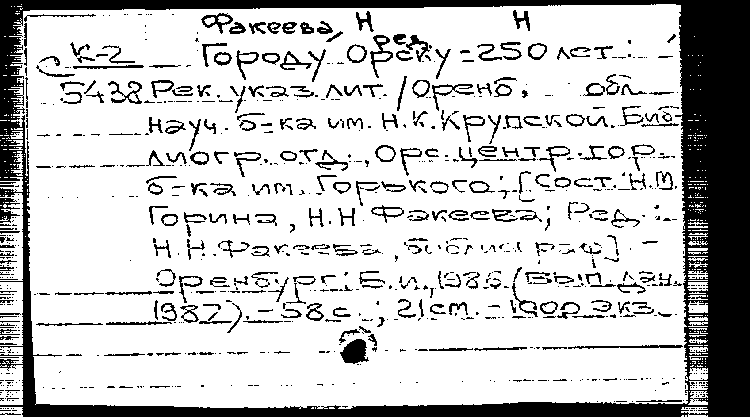 Факеева, Н Н
ред.
С К-2 Городу Орску = 250 лет :
5438 Рек. указ. лит. / Оренб. обл.
науч. б-ка им. Н.К. Крупской. Биб-
лиогр. отд., Орс. центр. гор.
б-ка им. Горького; [Сост. Н.М.
Горина, Н.Н. Факеева; Ред.:
Н.Н. Факеева, библиограф]. -
Оренбург: Б.и., 1986 (вып. дан.
1987). - 58 с.; 21 см. - 1000 экз.